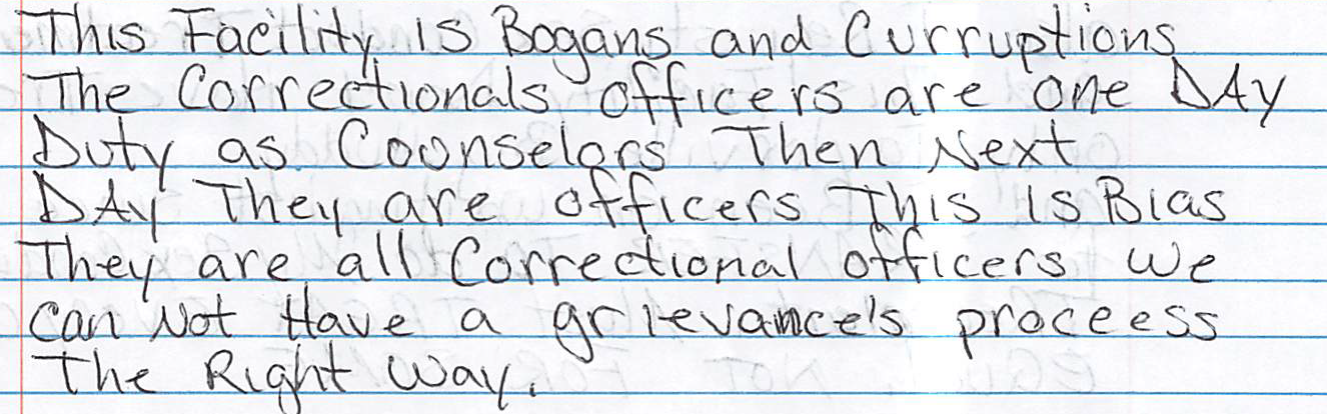 This Facility Is Bogans and Curruptions
The Correctionals officers are one DAy
Duty as Counselors Then Next
DAy They are officers This Is Bias
They are all Correctional officers we
can Not Have a grievance's proceess
The Right way.